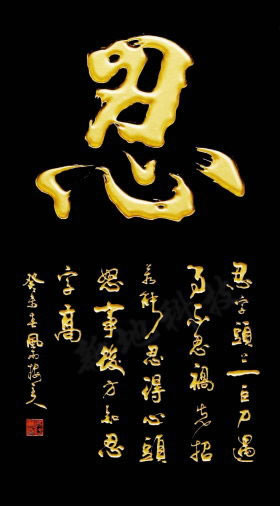 忍
忍字頭上一把刀遇
事不忍禍先招
若能忍得心頭
怒事後方知忍
字高
癸未春風雨樓主人